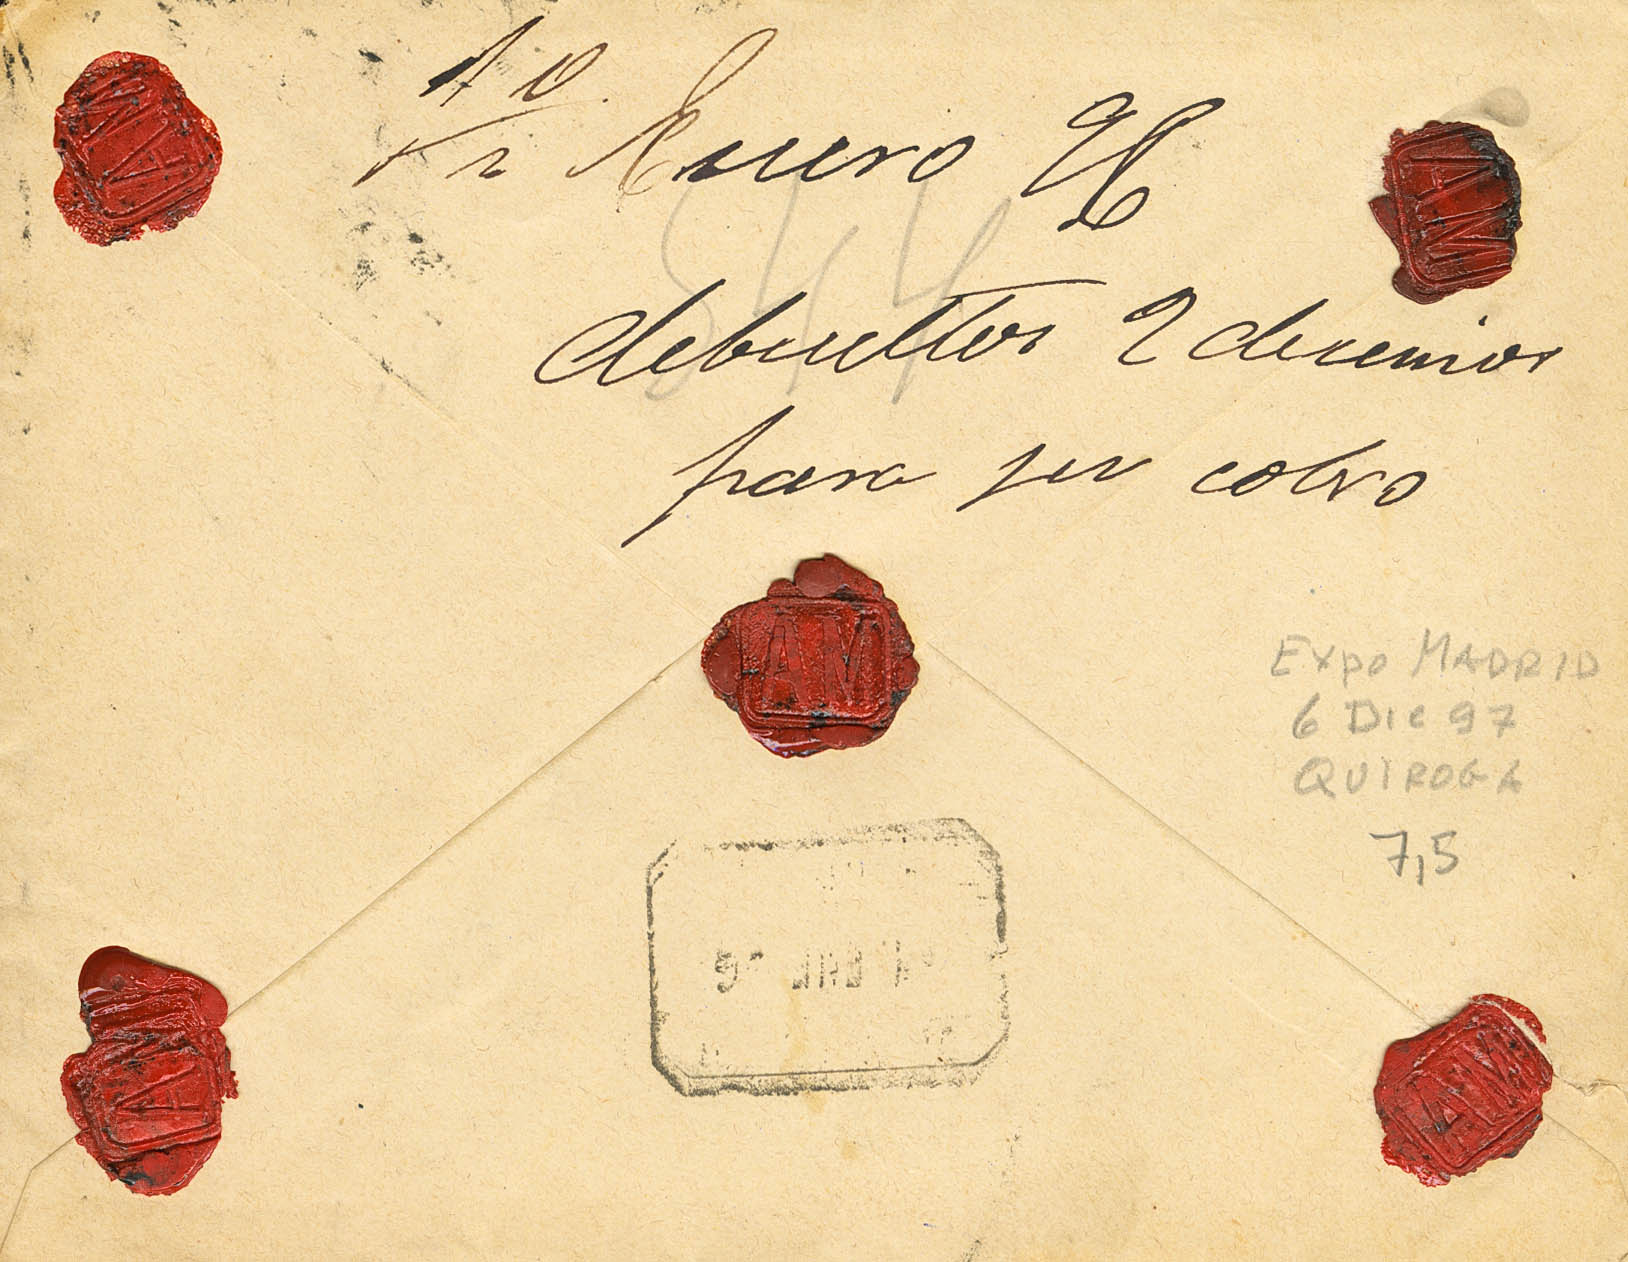 Enero 98
debueltos 2 decimios
para su cobro
544
AM
AM
AM
AM
AM
EXPO MADRID
6 DIC 97
QUIROGA
7,5